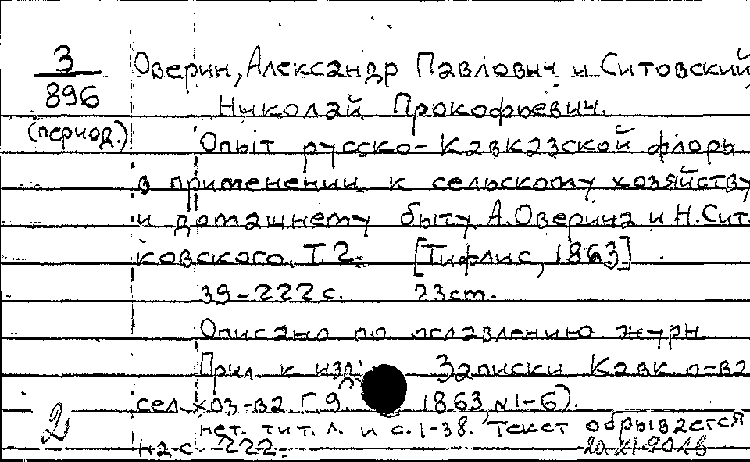 3
896
(период.)
Оверин, Александр Павлович и Ситовский
Николай Прокофьевич.
Опыт русско-Кавказской флоры
в применении к сельскому хозяйству
и домашнему быту А. Оверина и Н. Сит.
ковского. Т. 2. [Тифлис, 1863]
39-222 с. 23 cm.
Описано по оглавлению журн
Прил. к изд: Записки Кавк о-ва
сел. хоз-ва. Г. 9. 1863, №1-6).
нет. тит. л. и с. 1-38. Текст обрывается
на с. 222.
2